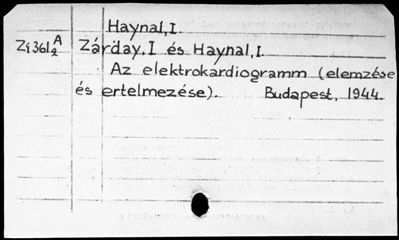 Haynal, I.
Zi 361 A/2 Zárday, I és Haynal, I.
Az elektrokardiogramm (elemzése
és ertelmezése). Budapest, 1944.